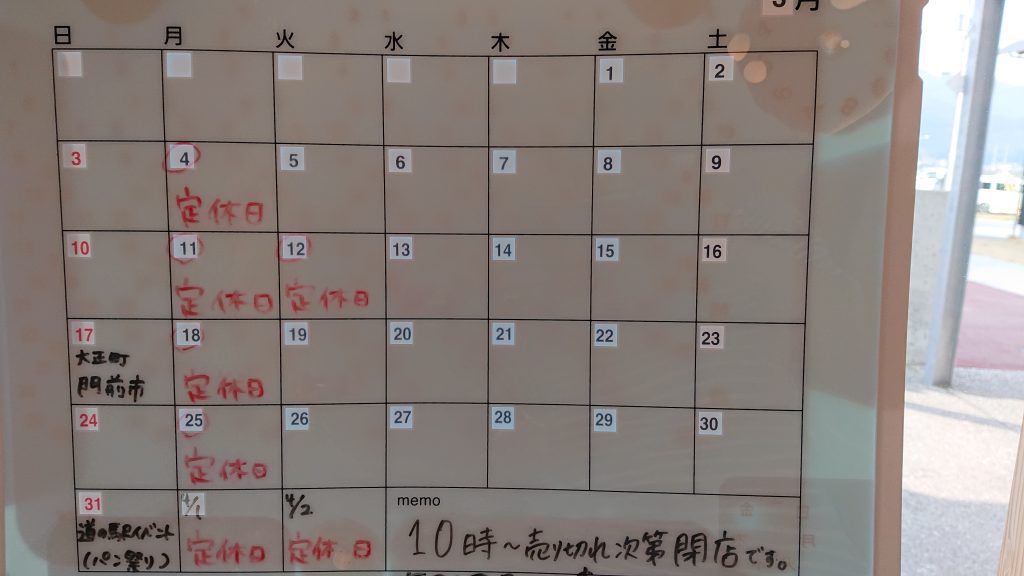 3月
日 月 火 水 木 金 土
1 2
3 4 5 6 7 8 9
定休日
10 11 12 13 14 15 16
定休日 定休日
17 18 19 20 21 22 23
大正町
門前市 定休日
24 25 26 27 28 29 30
定休日
31 4/1 4/2 memo
道の駅イベント
(パン祭り) 定休日 定休日
10時~売り切れ次第閉店です。